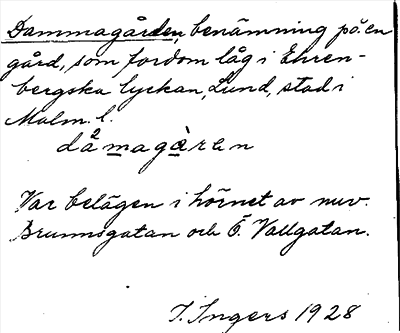 Dammagården, benämning på en
gård, som fordom låg i Ehren-
bergska lyckan, Lund, stad i
Malm. l.
då²magården
Var belägen i hörnet av nuv.
Brunnsgatan och Ö. Vallgatan.
I. Ingers 1928